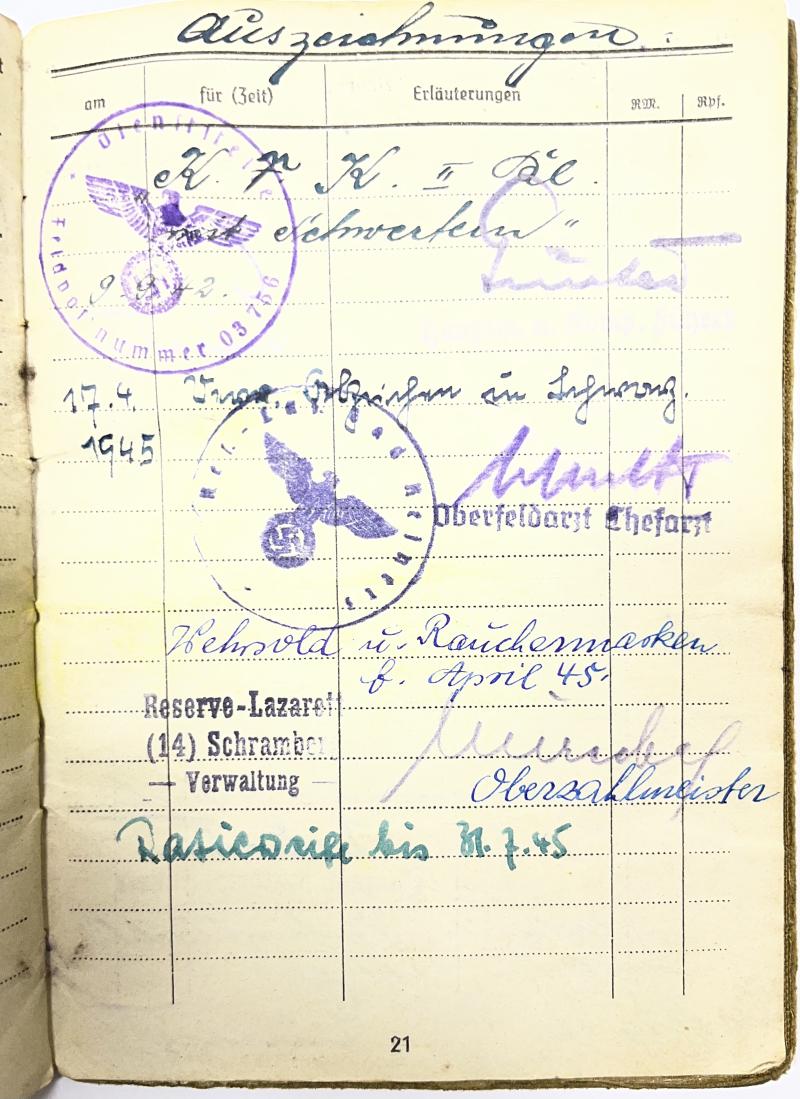 Auszeichnungen.
am für (Zeit) Erläuterungen RM. Rpf.
Dienststelle
Feldpostnummer 03 756
K. V. K. II Kl.
"mit Schwertern"
9.9.42.
17.4. Verw. Abzeichen in Schwarz.
1945
Res.-Laz. Bad Reinerz
Oberfeldarzt Chefarzt
Wehrsold u. Rauchermarken
f. April 45.
Reserve-Lazarett
(14) Schramberg
— Verwaltung —
Oberzahlmeister
bis 31.7.45
21